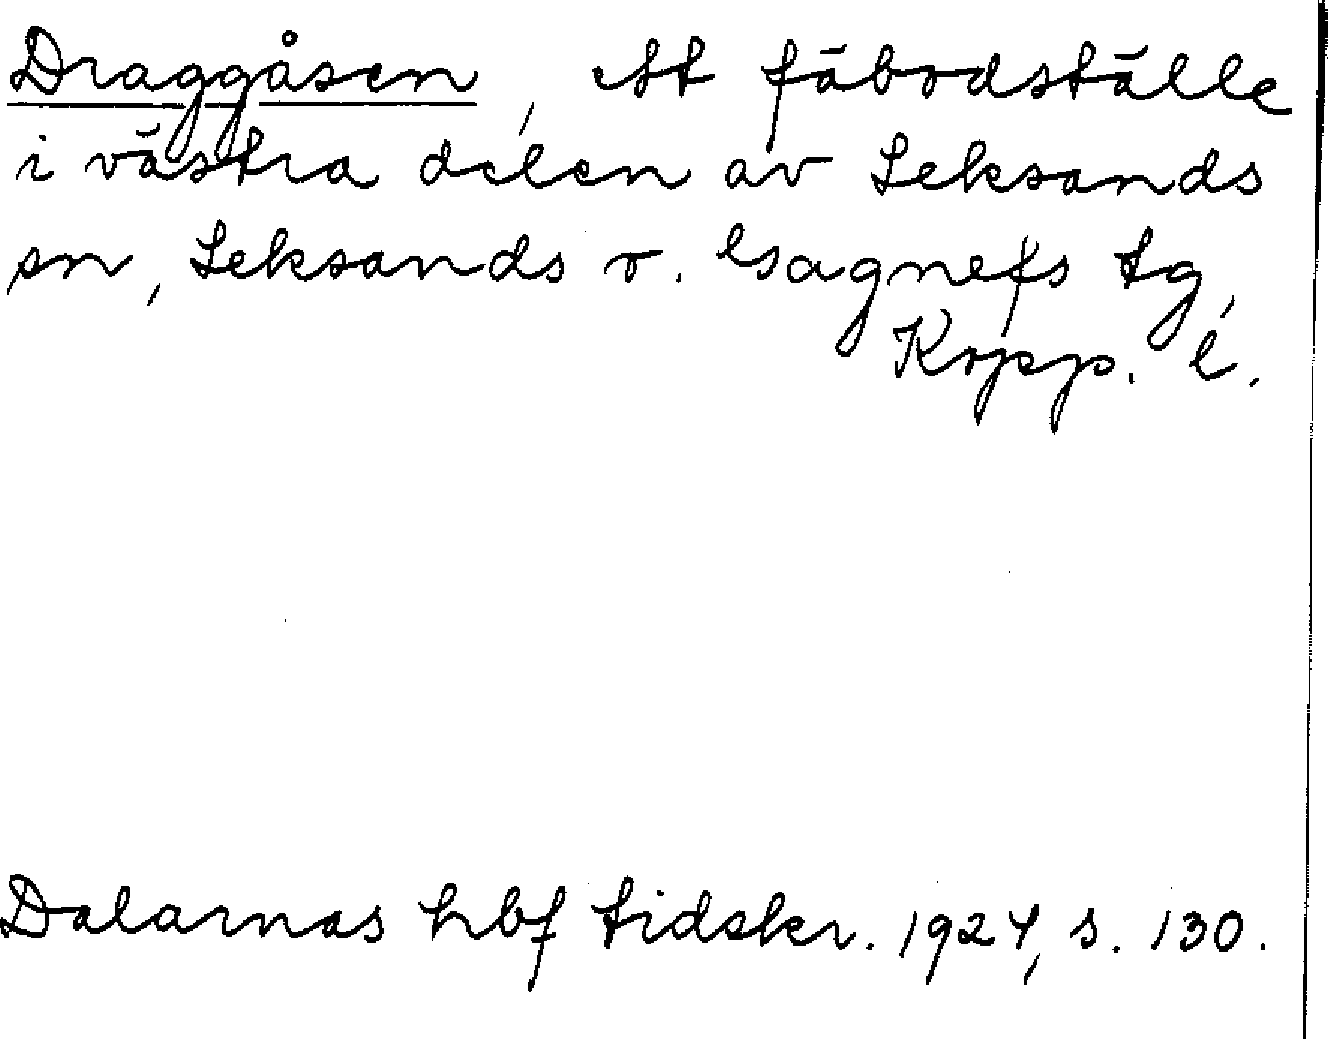 Draggåsen, ett fäbodställe
i västra delen av Leksands
sn, Leksands o. Gagnefs tg,
Kopp. l.
Dalarnas hbf tidskr. 1924, s. 130.